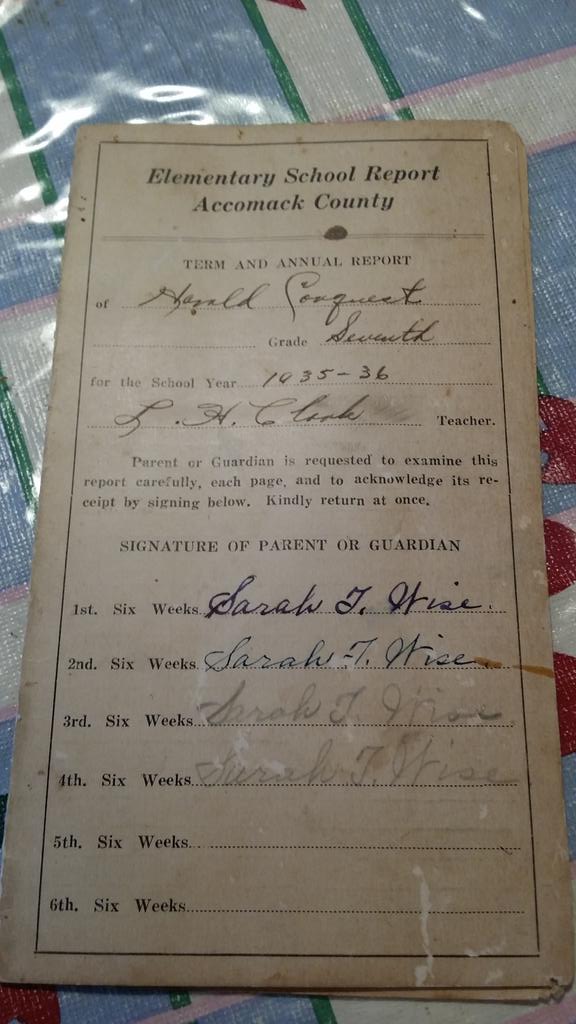 Elementary School Report
Accomack County
TERM AND ANNUAL REPORT
of Harold Conquest
Grade Seventh
for the School Year 1935-36
L. H. Clark Teacher.
Parent or Guardian is requested to examine this
report carefully, each page, and to acknowledge its re-
ceipt by signing below. Kindly return at once.
SIGNATURE OF PARENT OR GUARDIAN
1st. Six Weeks Sarah T. Wise.
2nd. Six Weeks Sarah T. Wise
3rd. Six Weeks Sarah T. Wise
4th. Six Weeks Sarah T. Wise
5th. Six Weeks
6th. Six Weeks